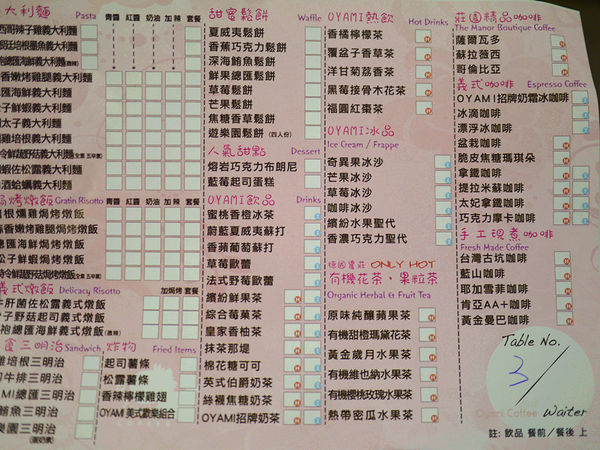 大利麵 Pasta 青醬 紅醬 奶油 加辣 套餐
西哥辣子雞義大利麵
培根墨魚義大利麵
總匯義大利麵
香嫩烤雞腿義大利麵
匯海鮮義大利麵
子鮮蝦義大利麵
太子義大利麵
雞培根義大利麵
冷鮮蔬野菇義大利麵(全素 五辛素)
蝦佐松露義大利麵
酒蛤蠣義大利麵
焗烤燉飯 Gatin Risotto 套餐
培根燻雞焗烤燉飯
香嫩烤雞腿焗烤燉飯
總匯海鮮焗烤燉飯
松子鮮蝦焗烤燉飯
鮮蔬野菇焗烤燉飯(全素 五辛素)
義式燉飯 Delicacy Risotto 加焗烤 套餐
牛肝菌佐松露義式燉飯
子野菇起司義式燉飯
袍總匯海鮮義式燉飯(微辣)
三明治 Sandwich
雞培根三明治
牛排三明治
MI總匯三明治
鮪魚三明治
樂園三明治
炸物 Fried Items
起司薯條
松露薯條
香辣檸檬雞翅
OYAMI 美式歡樂組合
甜蜜鬆餅 Waffle
夏威夷鬆餅
香蕉巧克力鬆餅
深海鮪魚鬆餅
鮮果總匯鬆餅
草莓鬆餅
芒果鬆餅
焦糖香草鬆餅
遊樂園鬆餅 (四人份)
人氣甜點 Dessert
熔岩巧克力布朗尼
藍莓起司蛋糕
OYAMI飲品 Drinks
蜜桃香橙冰茶
蔚藍夏威夷蘇打
香頌葡萄蘇打
草莓歐蕾
法式野莓歐蕾
繽紛鮮果茶
綜合莓菓茶
皇家香柚茶
抹茶那堤
棉花糖可可
英式伯爵奶茶
絲襪焦糖奶茶
OYAMI招牌奶茶
OYAMI熱飲 Hot Drinks
香橘檸檬茶
覆盆子香草茶
洋甘菊荔香茶
黑莓接骨木花茶
福圓紅棗茶
OYAMI冰品
Ice Cream / Frappe
奇異果冰沙
芒果冰沙
草莓冰沙
咖啡冰沙
繽紛水果聖代
香濃巧克力聖代
德國農莊 ONLY HOT
有機花茶・果粒茶
Organic Herbal & Fruit Tea
原味純釀蘋果茶
有機甜橙瑪黛花茶
黃金歲月水果茶
有機維也納水果茶
有機櫻桃玫瑰水果茶
熱帶密瓜水果茶
莊園精品咖啡
The Manor Boutique Coffee
薩爾瓦多
蘇拉薇西
哥倫比亞
義式咖啡 Espresso Coffee
OYAMI招牌奶霜冰咖啡
冰滴咖啡
漂浮冰咖啡
盆栽咖啡
脆皮焦糖瑪琪朵
拿鐵咖啡
提拉米蘇咖啡
太妃拿鐵咖啡
巧克力摩卡咖啡
手工現煮咖啡
Fresh Made Coffee
台灣古坑咖啡
藍山咖啡
耶加雪菲咖啡
肯亞AA+咖啡
黃金曼巴咖啡
Table No.
3/
Oyami Coffee Waiter
註: 飲品 餐前/餐後 上